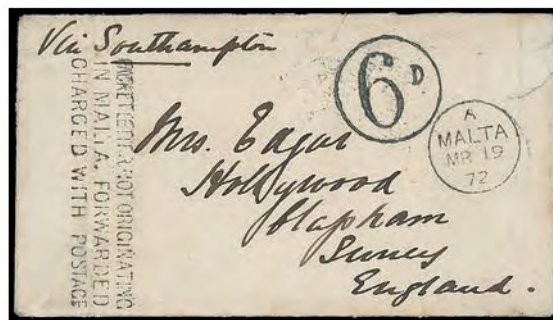 Via Southampton
PACKET LETTER NOT ORIGINATING
IN MALTA, FORWARDED
CHARGED WITH POSTAGE
6D
A
MALTA
MR 19
72
Mrs. Edgar
Hollywood
Clapham
Surrey
England.